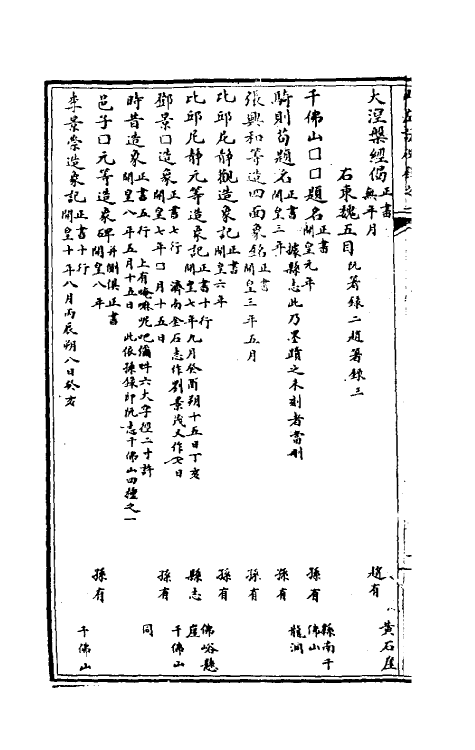 大涅槃經偈 正書 無年月 趙有 黃石崖
右東魏五目 阮著錄二趙著錄三
千佛山口口題名 正書 開皇元年 孫有 縣南千佛山
騎則苟題名 正書 開皇三年 據縣志此乃墨蹟之未刻者當刪 孫有 龍洞
張興和等造四面象銘 正書 開皇三年五月 孫有
比邱尼靜觀造象記 正書 開皇六年 孫有
比邱尼靜元等造象記 正書十行 開皇七年九月癸酉朔十五日丁亥 縣志 佛峪懸崖
鄧景口造象 正書七行 開皇七年口月十五日 濟南金石志作劉景茂又作七日 孫有 千佛山
時昔造象 正書五行 開皇八年五月十五日 上有唵嘛呢吧彌吽六大字徑二寸許 此依孫錄即阮志千佛山四種之一 同
邑子口元等造象碑 并側俱正書 開皇八年 孫有
李景崇造象記 正書十行 開皇十年八月丙辰朔八日癸亥 千佛山